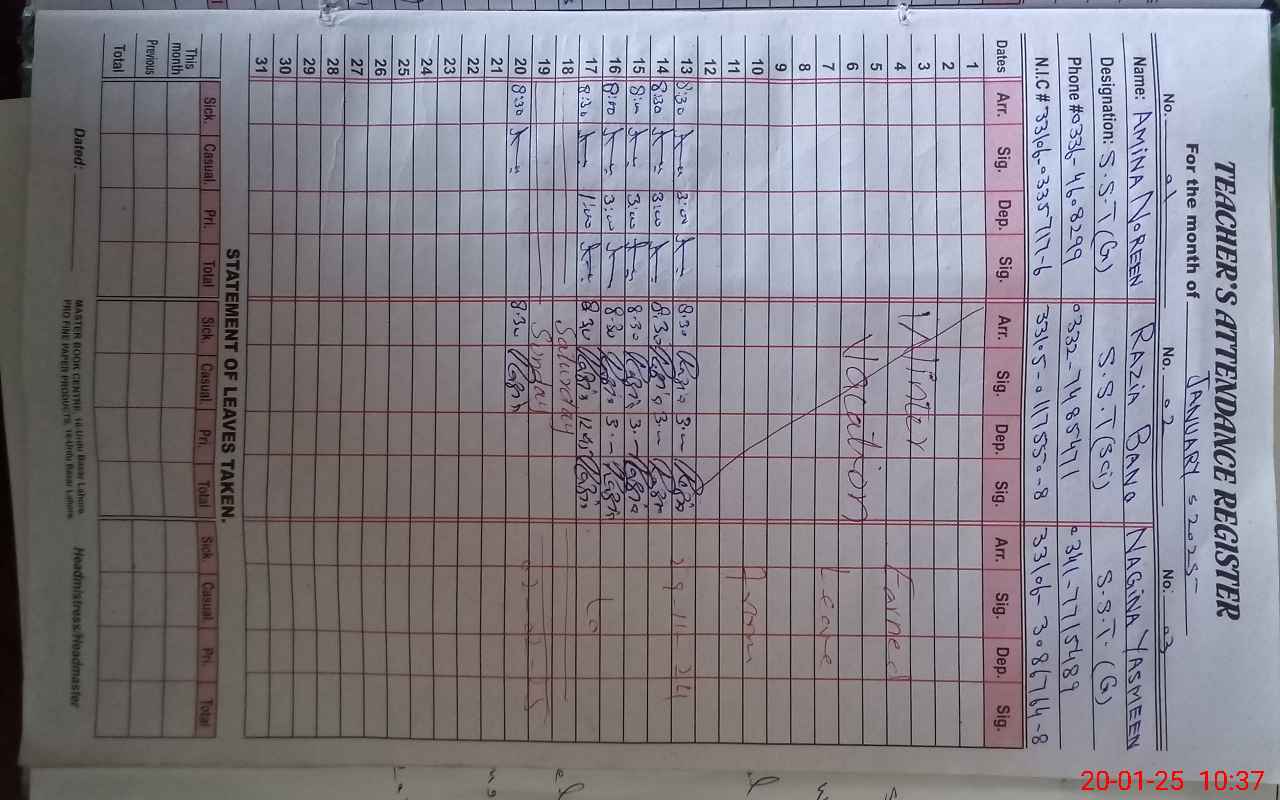 TEACHER'S ATTENDANCE REGISTER
For the month of JANUARY 2025
No. 01 No. 02 No. 03
Name: AMINA NOREEN RAZIA BANO NAGINA YASMEEN
Designation: S.S.T (G) S.S.T (Sci) S.S.T. (G)
Phone # 0336-4608299 0332-7485471 0341-7715489
N.I.C # 33106-0335717-6 33105-0117550-8 33106-3086764-8
Dates Arr. Sig. Dep. Sig. Arr. Sig. Dep. Sig. Arr. Sig. Dep. Sig.
1
2
3
4 Winter Earned
5
6 Vacation
7 Leave
8
9
10 From
11
12
13 8:30 3:00 8:30 3.00 29-11-24
14 8:30 3:00 8:30 3.00
15 8:00 3:00 8:30 3.00
16 8:00 3:00 8:30 3.00
17 8:30 1:00 8:30 To
18 Saturday
19 Sunday
20 8:30 8:30
21
22
23
24
25
26
27
28
29
30
31
STATEMENT OF LEAVES TAKEN.
Sick. Casual. Pri. Total Sick. Casual. Pri. Total Sick. Casual. Pri. Total
This month
Previous
Total
Dated: MASTER BOOK CENTRE, 16-Urdu Bazar Lahore. Headmistress/Headmaster
PRO FINE PAPER PRODUCTS, 16-Urdu Bazar Lahore.
20-01-25 10:37